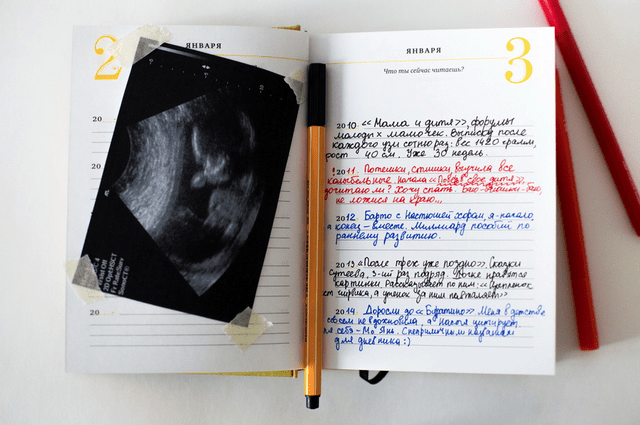 2
ЯНВАРЯ
20
20
20
20 Opt:HSCT
ЯНВАРЯ
3
Что ты сейчас читаешь?
2010 «Мама и дитя», форумы
молодых мамочек. Выписки после
каждого узи сотню раз: вес 1420 грамм,
рост 40 см. Уже 30 недель.
2011. Потешки, стишки, выучила все
колыбельные. Начала «Пойми свое дитя»,
дочитаю ли? Хочу спать. Баю-баюшки-баю,
не ложися на краю...
2012. Барто с Настюшей хором, я - начало,
а конец - вместе. Миллиард пособий по
раннему развитию.
2013 «После трех уже поздно». Сказки
Сутеева, 3-ий раз подряд. Дочке нравятся
картинки. Рассказывает по ним: «Цыпленок
ест червика, а утенок за ним
2014. Доросли до «Буратино» Меня в детстве
совсем не вдохновила, а Настя цитирует.
для дневника :)